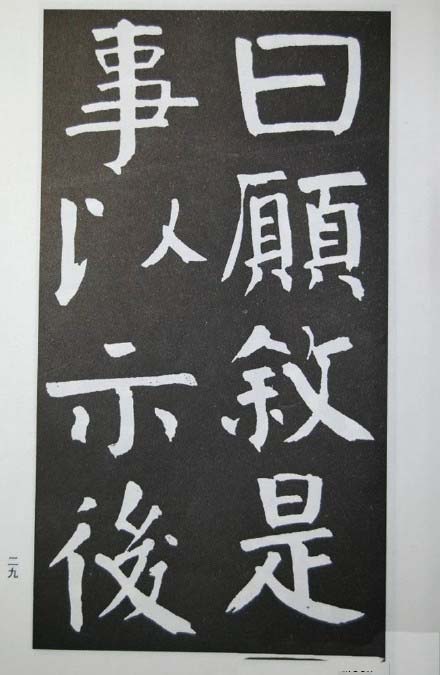 曰願敘是
事以示後
二九